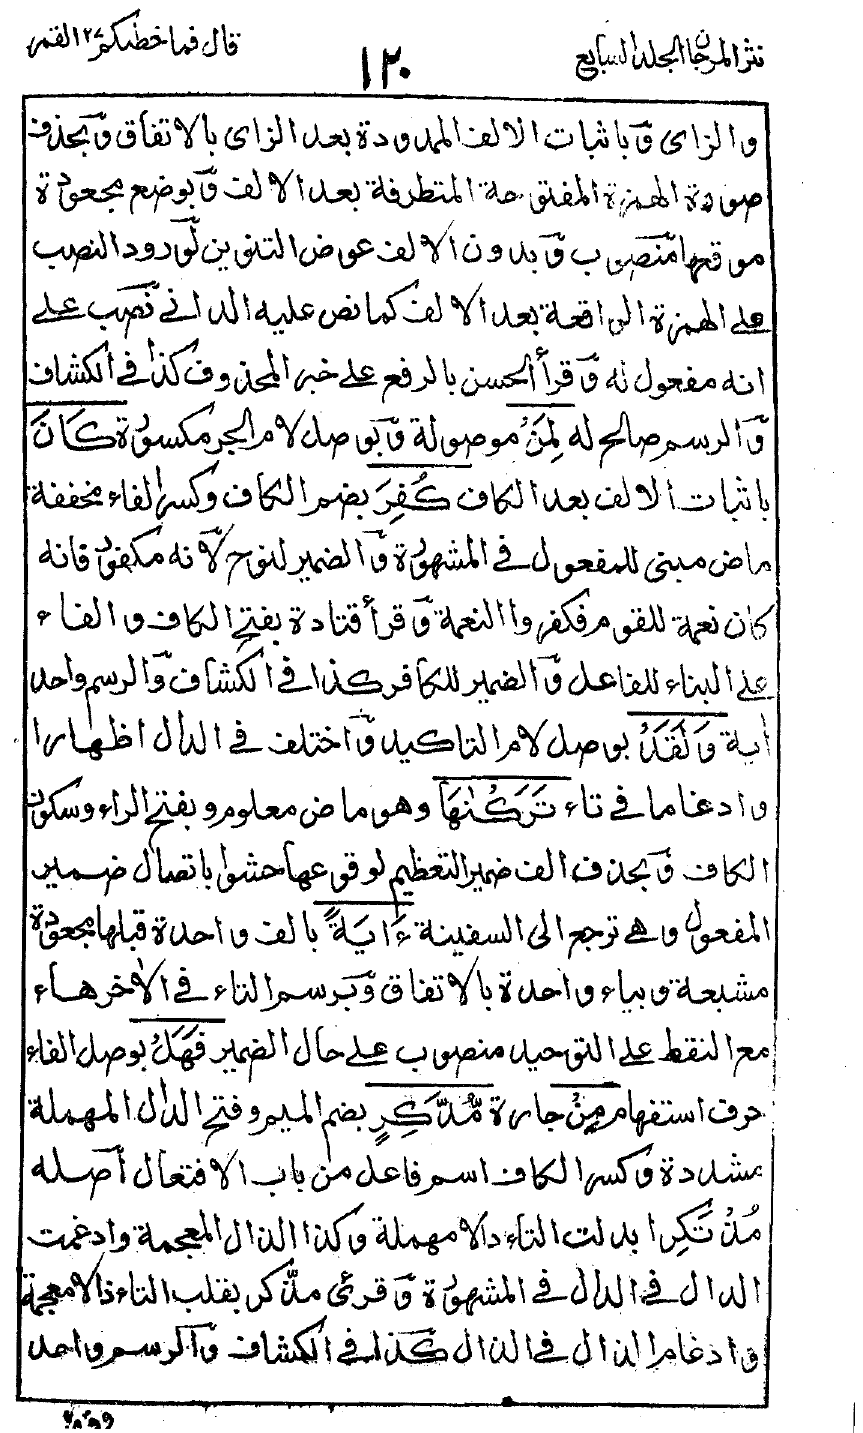 نثر المرجان الجلد السابع
١٢٠
قال فما خطبكم ٢٧ القمر
والزاى وَباثبات الالف الممدودة بعد الزاى بالاتفاق وَبحذف
صورة الهمزة المفتوحة المتطرفة بعد الالف وَبوضع مجعودة
موقعها منصوب وَبدون الالف عوض التنوين لورود النصب
على الهمزة الواقعة بعد الالف كما نص عليه الدانى نصب على
انه مفعول له وَقرأ الحسن بالرفع على خبر المحذوف كذا فى الكشاف
وَالرسم صالح له لِمَنْ موصولة وَبوصل لام الجر مكسورة كَانَ
باثبات الالف بعد الكاف كُفِرَ بضم الكاف وكسر الفاء مخففة
ماض مبنى للمفعول فى المشهورة وَالضمير لنوح لانه مكفور فانه
كان نعمة للقوم فكفروا النعمة وَقرأ قتادة بفتح الكاف والفاء
على البناء للفاعل وَالضمير للكافر كذا فى الكشاف وَالرسم واحد
اٰية وَلَقَدْ بوصل لام التاكيد وَاختلف فى الدال اظهارا
وادغاما فى تاء تَرَكْنٰهَا وهو ماض معلوم وبفتح الراء وسكون
الكاف وَبحذف الف ضمير التعظيم لوقوعها حشوا باتصال ضمير
المفعول وهى ترجع الى السفينة ءَايَةً بالف واحدة قبلها مجعودة
مشبعة وبياء واحدة بالاتفاق وَبرسم التاء فى الاٰخر هاء
مع النقط على التوحيد منصوب على حال الضمير فَهَلْ بوصل الفاء
حرف استفهام مِنْ جارة مُّدَّكِرٍ بضم الميم وفتح الدال المهملة
مشددة وكسر الكاف اسم فاعل من باب الافتعال أصله
مُذْتَكِرا بدلت التاء دالا مهملة وكذا الذال المعجمة وادغمت
الدال فى الدال فى المشهورة وَقرئ مذّكر بقلب التاء ذالا معجمة
وادغام الذال فى الذال كذا فى الكشاف وَالرسم واحد